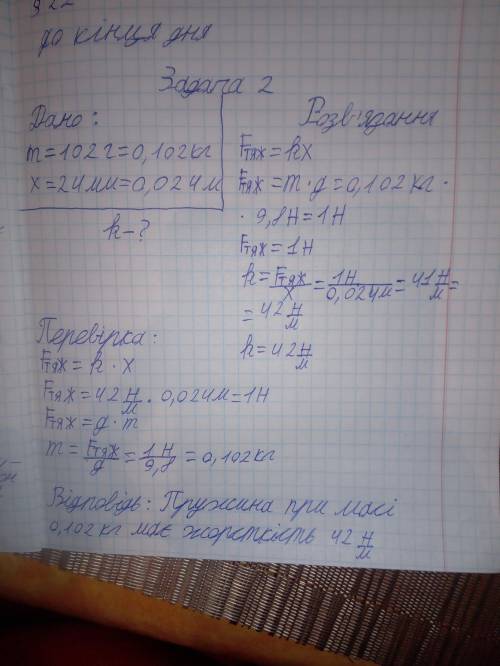 до кінця дня
Задача 2
Дано:
m=102г=0,102кг
x=24мм=0,024м
k-?
Розв'язання
Fтяж=kx
Fтяж=m·g=0,102кг·
·9,8Н=1Н
Fтяж=1Н
k=Fтяж/x=1Н/0,024м=41Н/м=
=42Н/м
k=42Н/м
Перевірка:
Fтяж=k·x
Fтяж=42Н/м·0,024м=1Н
Fтяж=g·m
m=Fтяж/g=1Н/9,8=0,102кг
Відповідь: Пружина при масі
0,102кг має жорсткість 42Н/м